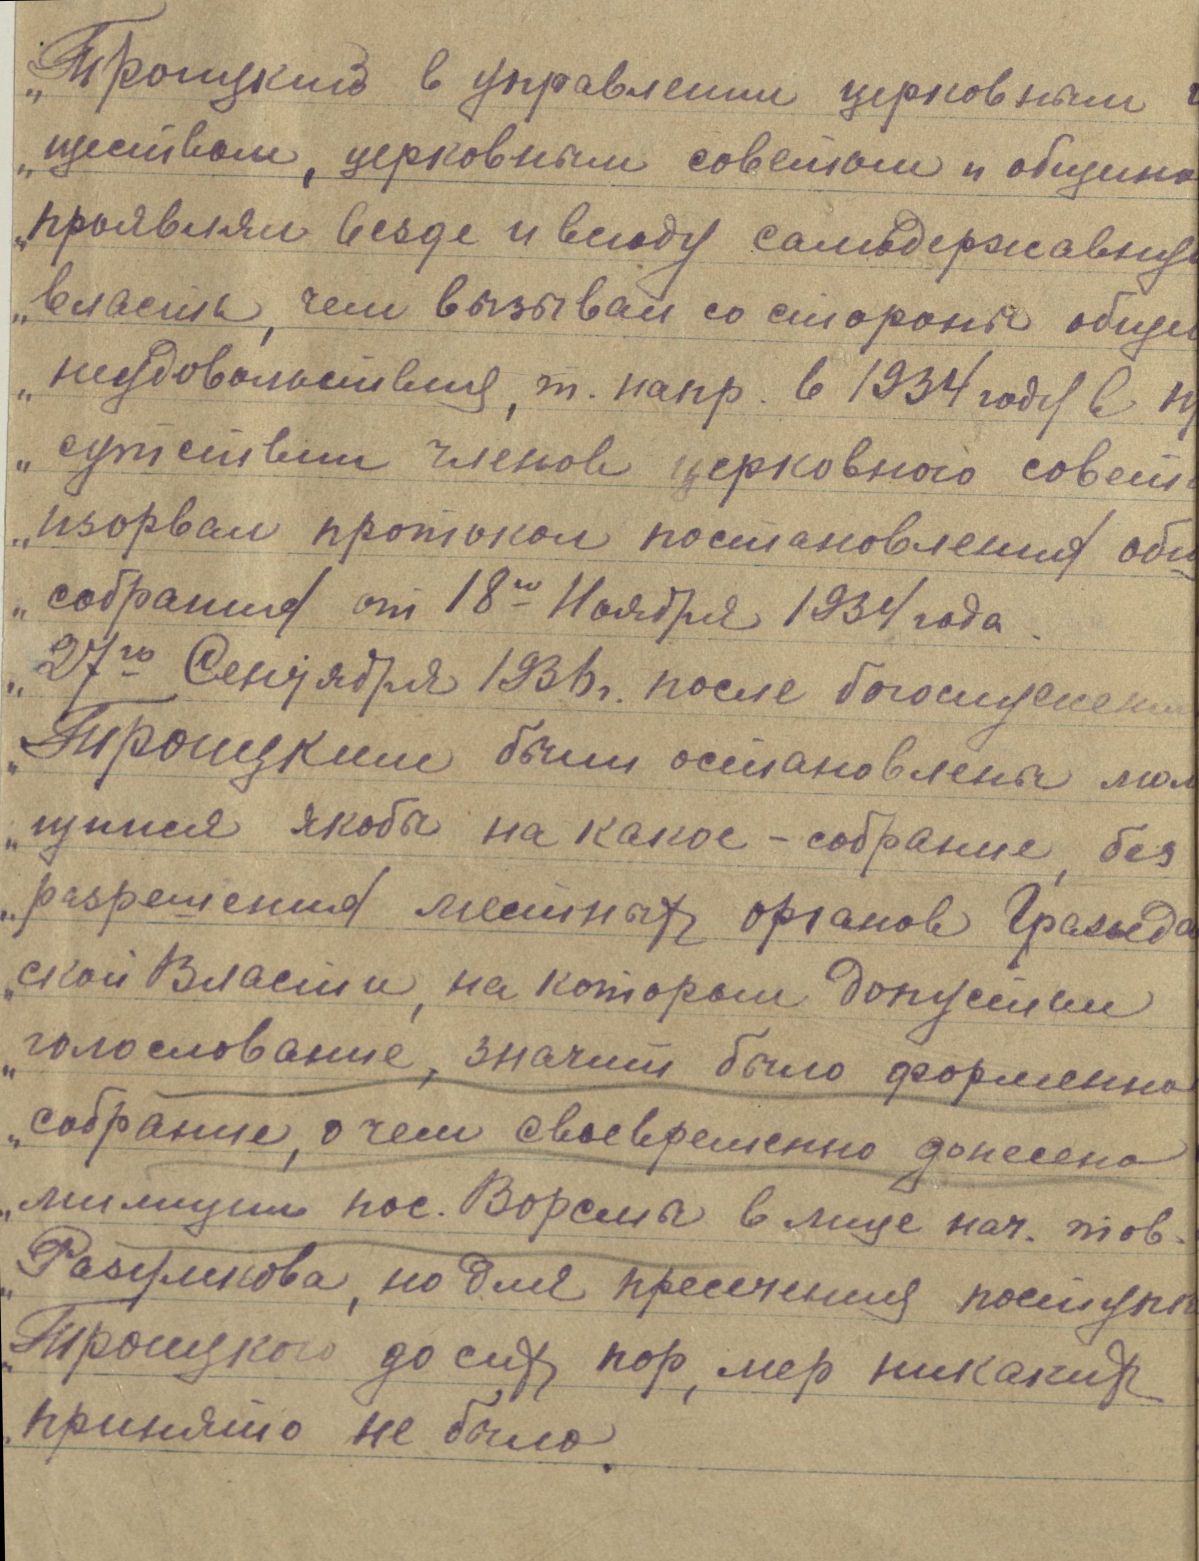 „Троицкий в управлении церковным
„ществом, церковным советом и общино
„проявлял везде и всюду самодержавну
„власть, чем вызывал со стороны обще
„неудовольствия, т. напр. в 1934 году в пр
„сутствии членов церковного совет
„изорвал протокол постановления общ
„собрания от 18го Ноября 1934 года.
„27го Сентября 1936г. после богослужени
„Троицким были остановлены мол
„щиися якобы на какое - собрание, без
„разрешения местных органов Гражда
„ской Власти, на котором допустил
„голослование, значит было форменно
„собрание, о чем своевременно донесено
„милиции пос. Ворсмы в лице нач. тов.
„Разумкова, но для пресечения поступк
„Троицкого до сих пор, мер никаких
„принято не было.